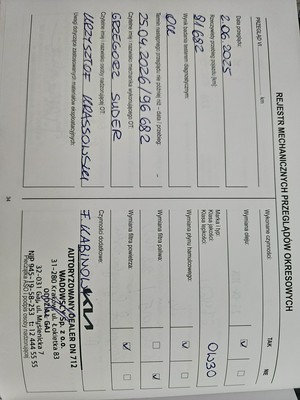 REJESTR MECHANICZNYCH PRZEGLĄDÓW OKRESOWYCH
PRZEGLĄD VI
km
Data przeglądu:
2.06.2025
Rzeczywisty przebieg pojazdu [km]:
81682
Wynik badania testerem diagnostycznym:
Termin następnego przeglądu nie później niż - data i przebieg:
25.04.2026/96 682
Czytelne imię i nazwisko mechanika wykonującego OT:
GRZEGORZ SUDER
Czytelne imię i nazwisko osoby nadzorującej OT:
KRZYSZTOF KRASSOWSKI
Uwagi dotyczące zastosowanych materiałów eksploatacyjnych:
Wykonane czynności:
TAK
NIE
Wymiana oleju:
Marka i typ:
Klasa jakości:
Klasa lepkości:
0W30
Wymiana płynu hamulcowego:
Wymiana filtra paliwa:
Wymiana filtra powietrza:
Czynności dodatkowe:
F. KABINOWY
KIA
AUTORYZOWANY DEALER DN 712
WADOWSCY Sp. z o.o.
31-280 Kraków, ul. Łokietka 83
ODDZIAŁ GAJ
32-031 Gaj, ul. Myślenicka 7
NIP 945-19-58-253 t: 12 444 55 55
Pieczątka ASO i podpis osoby nadzorującej
34